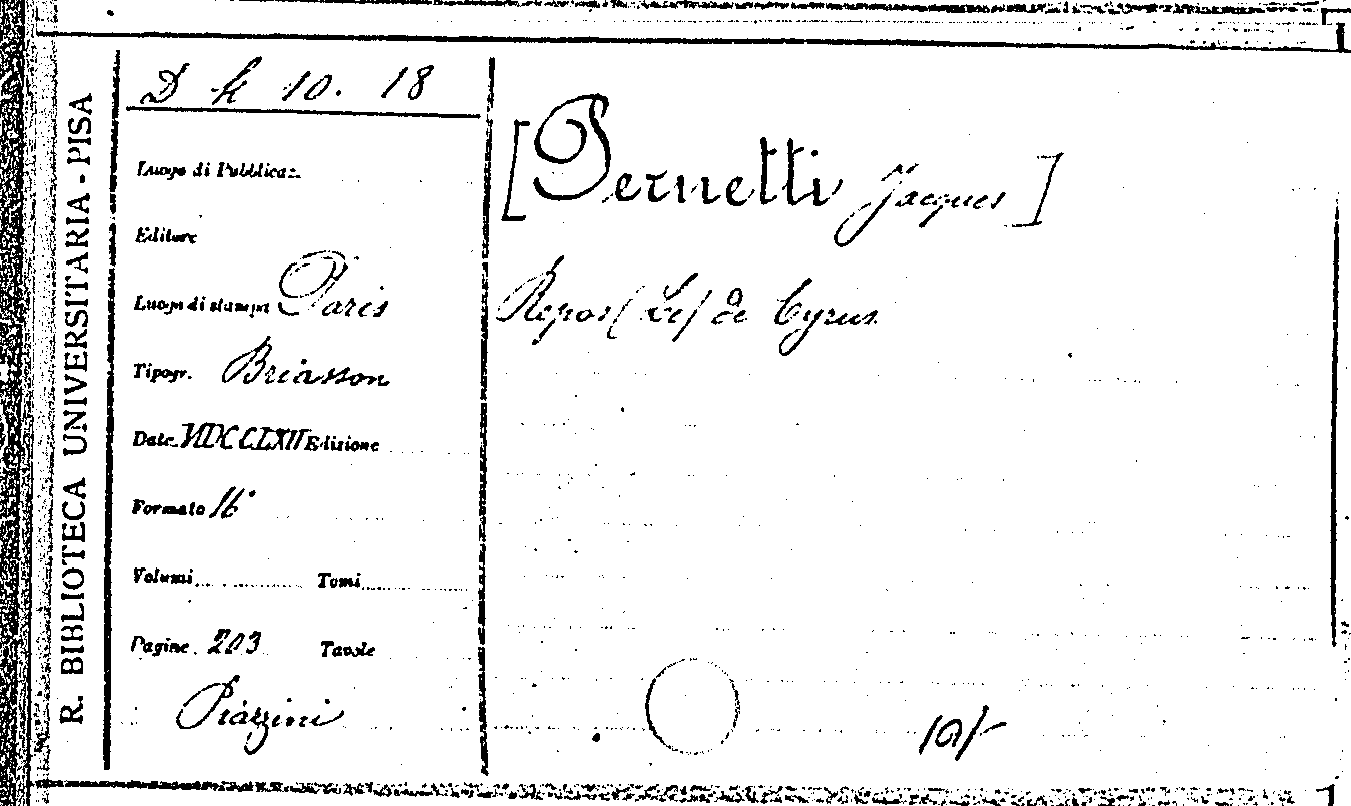 R. BIBLIOTECA UNIVERSITARIA - PISA
D k 10. 18
Luogo di Pubblicaz.
Editore
Luogo di stampa Paris
Tipogr. Briasson
Date MDCCLXII Edizione
Formato 16°
Volumi Tomi
Pagine 203 Tavole
Piazzini
[Pernetti Jacques]
Repos (Le) de Cyrus